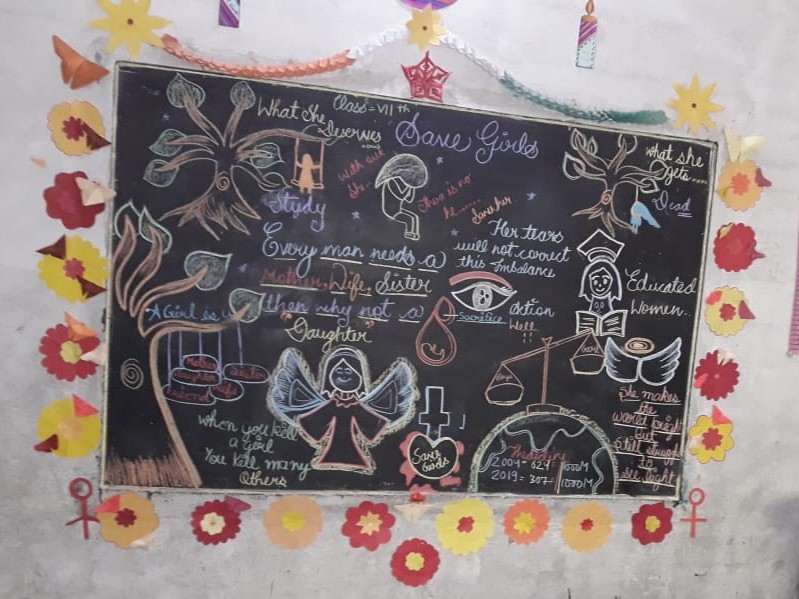 Class = VII th
What She
Deserves
Save Girls
what she
gets....
Dead
Study
With out
She..
There is no
he......
Save her.
Her tears
will not correct
this Imbalance
Every man needs a
Mother, Wife, Sister
then why not a
"Daughter"
Action
Well
Sacrifice
Educated
Women..
A Girl is
Mother
daughter
Sister
friend
wife
boys
girl
She makes
the
world bright
but
Still struggle
to
see light
When you kill
a girl
You kill many
Others
Save
Girls
2004 - 624 1000M
2019 = 307 - 1000M